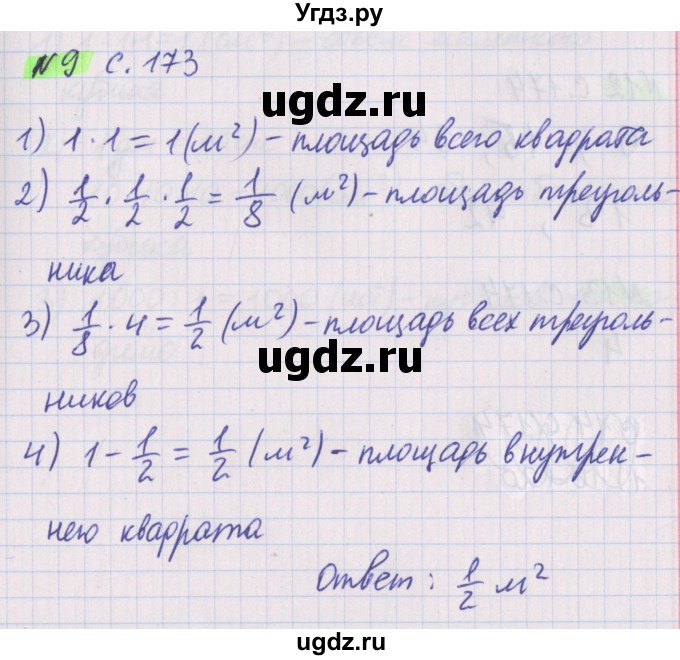 Угдз.ру
№9 с. 173
ugdz.ru
1) 1 · 1 = 1 (м²) – площадь всего квадрата
2) 1/2 · 1/2 · 1/2 = 1/8 (м²) – площадь треуголь-
ника
ugdz.ru
3) 1/8 · 4 = 1/2 (м²) – площадь всех треуголь-
ugdz.ru
ников
4) 1 - 1/2 = 1/2 (м²) – площадь внутрен-
ugdz.ru
нею квадрата
Ответ: 1/2 м²
ugdz.ru